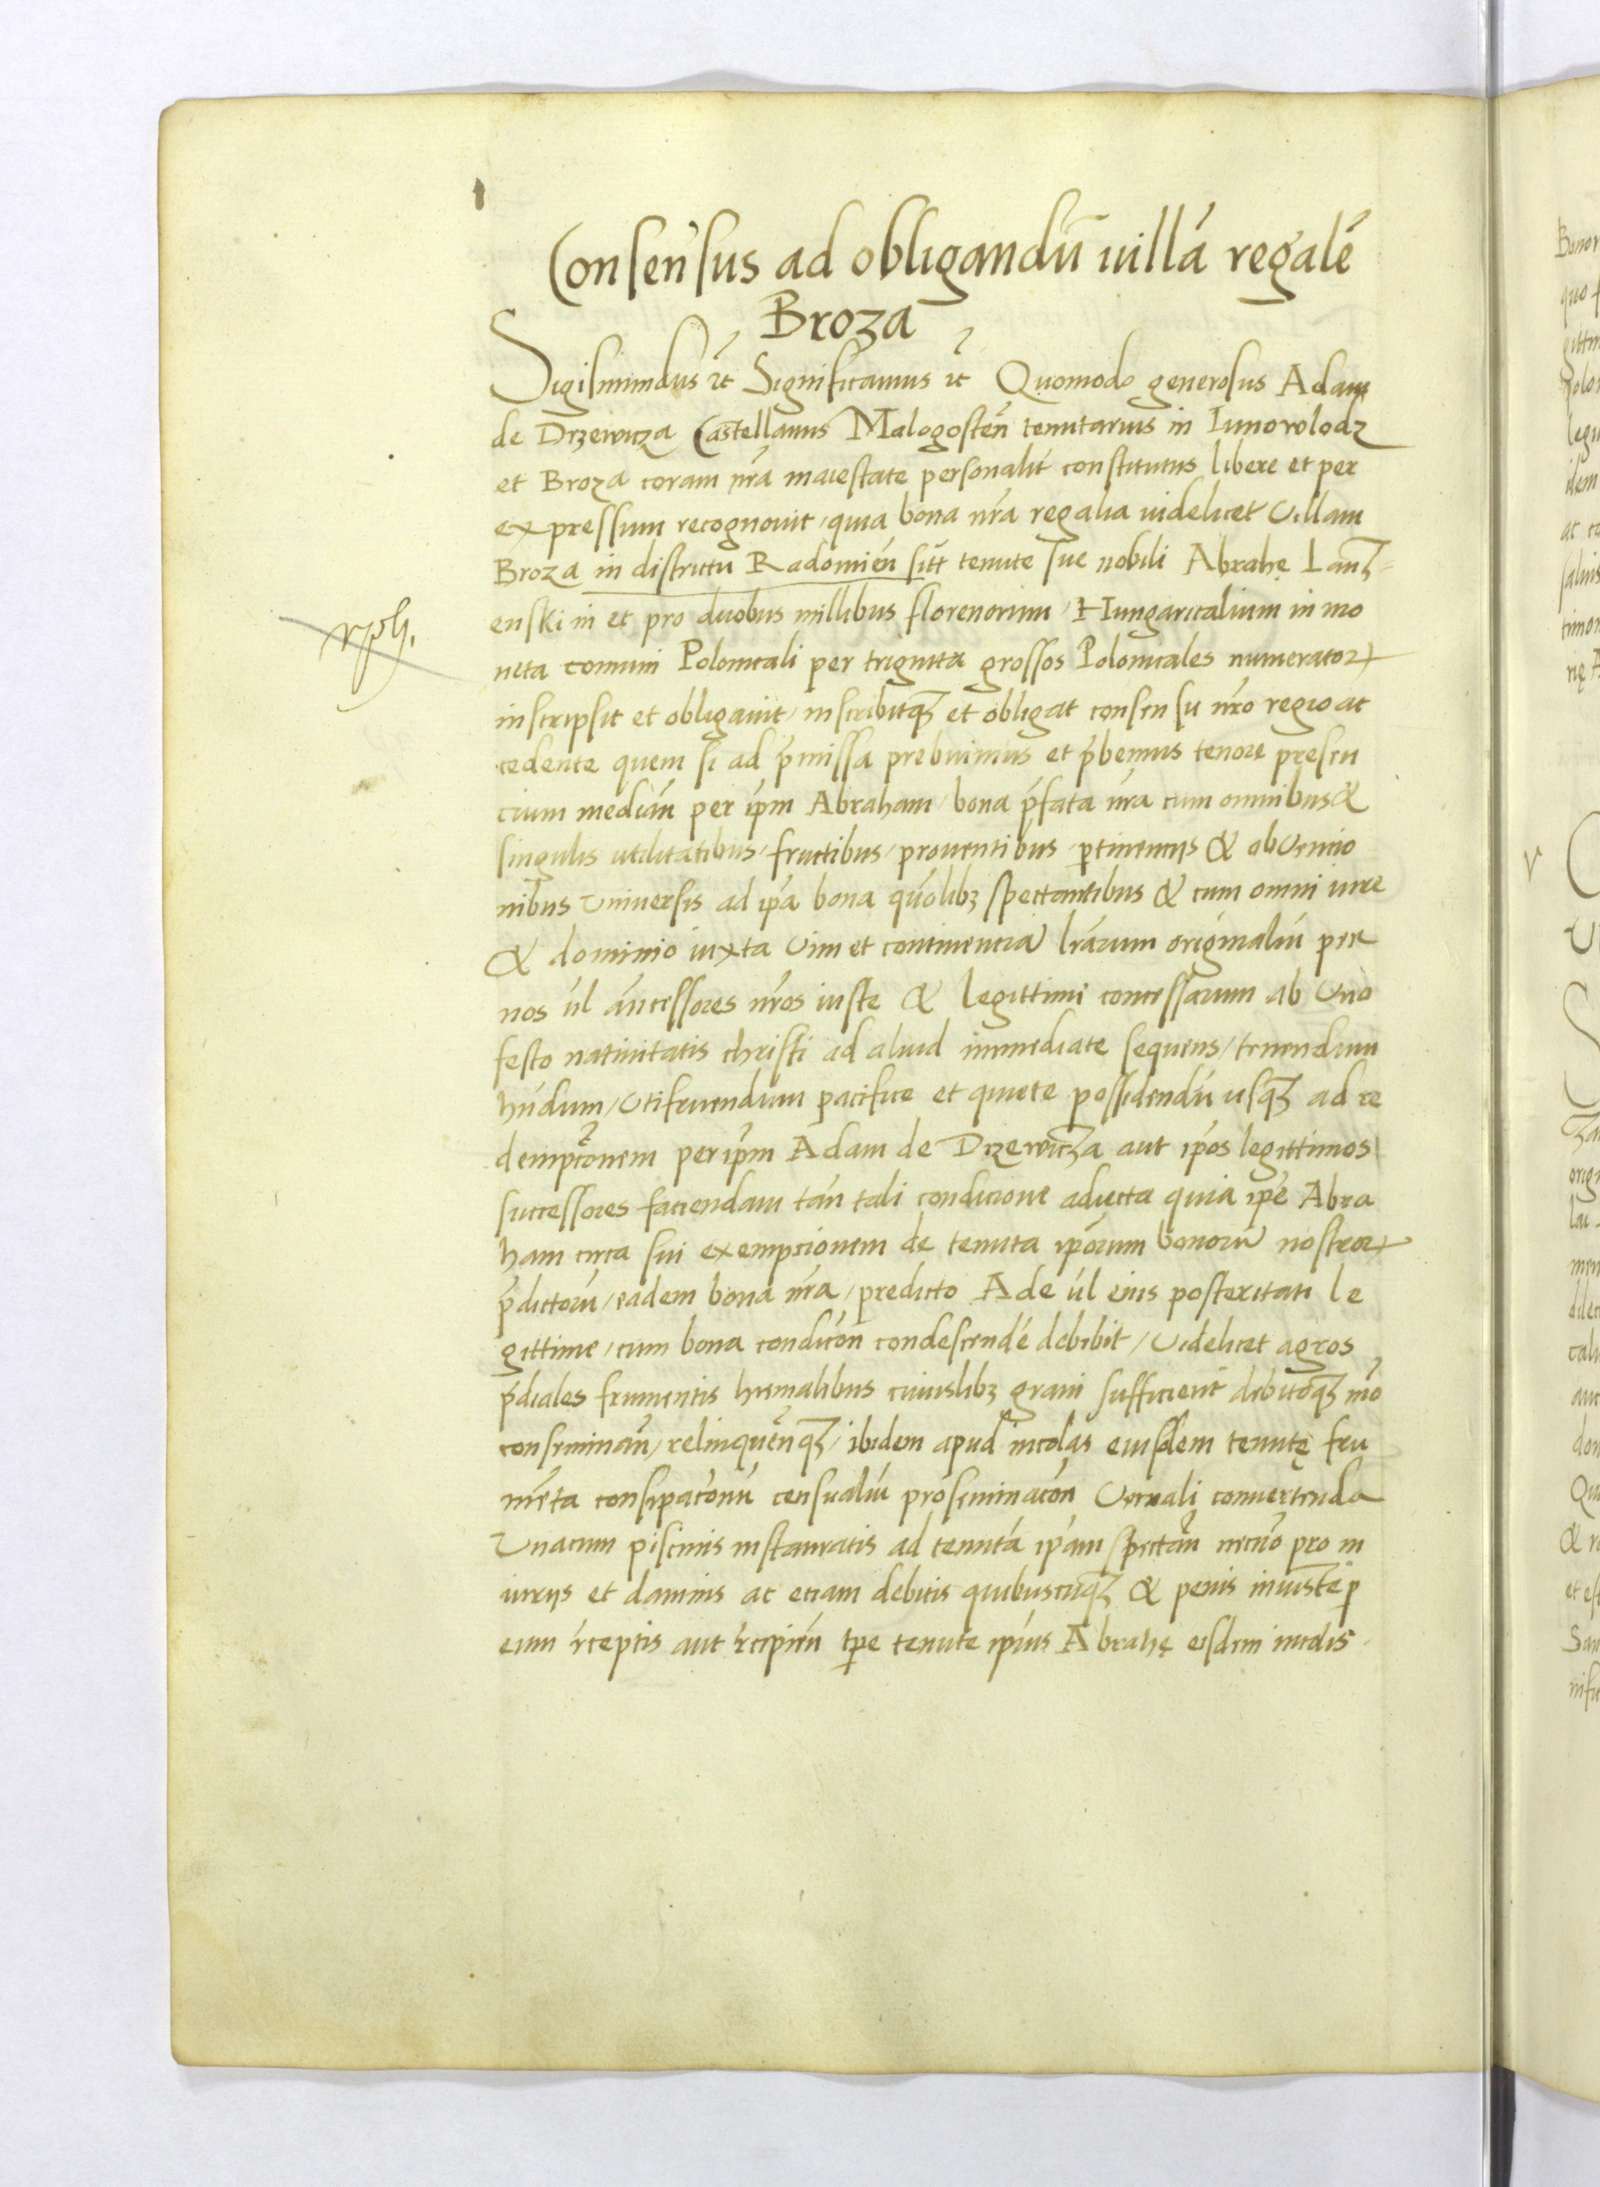 Consensus ad obligandū uillā regalē
Broza
Sigismundus ꝛc̄ Significamus ꝛc̄ Quomodo generosus Adam
de Drzewicza Castellanus Malogostēn tenutarius in Iunowlodz
et Broza coram nr̄a maiestate personalit̄ constitutus libere et per
expressum recognouit, quia bona nr̄a regalia uidelicet Villam
Broza in districtu Radomień sitt tenute sue nobili Abrahę Lanᷤ-
enski in et pro duobus millibus florenorum, Hungaricalium in mo
neta comuni Polonicali per triginta grossos Polonicales numeratoꝝ
inscripsit et obligauit, inscribitqꝫ et obligat consensu nr̄o regio ac
cedente quem si ad p̄missa prebuimus et p̄bemus tenore presen
cium mediān per ip̄m Abraham, bona p̄fata nr̄a cum omnibus &
singulis utilitatibus, fructibus, prouentibus, ꝑtinencijs & obuencio
nibus Vniuersis ad ip̄a bona quōlibꝫ spectantibus & cum omni iure
& dominio iuxta Vim et continenciā lrārum originaliū per
nos ūl āncessores nr̄os iuste & legittime concessarum ab Vno
festo natiuitatis christi ad aliud immediate sequens, tenendum
hn̄dum, Vtifruendum pacifice et quiete possidendū usqꝫ ad re
dempcīonem per ip̄m Adam de Drzewicza aut ip̄os legittimos
successores faciendam tān tali condicione adiecta quia ip̄e Abra
ham circa sui exempcionem de tenuta ip̄orum bonorū nostroꝝ
p̄dictorū, eadem bona nr̄a, predicto Ade ūl eius posteritati le
gittime, cum bona condicōn condescendē debebit, Videlicet agros
p̄diales frumentis hiemalibus cuiuslibꝫ grani sufficient̄ debitoqꝫ mō
conseminān, relinquēnqꝫ, ibidem apud incolas eiusdem tenutę fru
mēta consipacōnū censualiū pro seminacōn Vernali conuertenda
Vnacum piscinis instauratis ad tenutā ip̄am spectān necnō pro in
iurijs et damnis ac eciam debitis quibuscūqꝫ & penis iniuste ꝑ
eum r̄ceptis aut r̄cipień tꝑe tenute ip̄ius Abrahę eisdem incolis